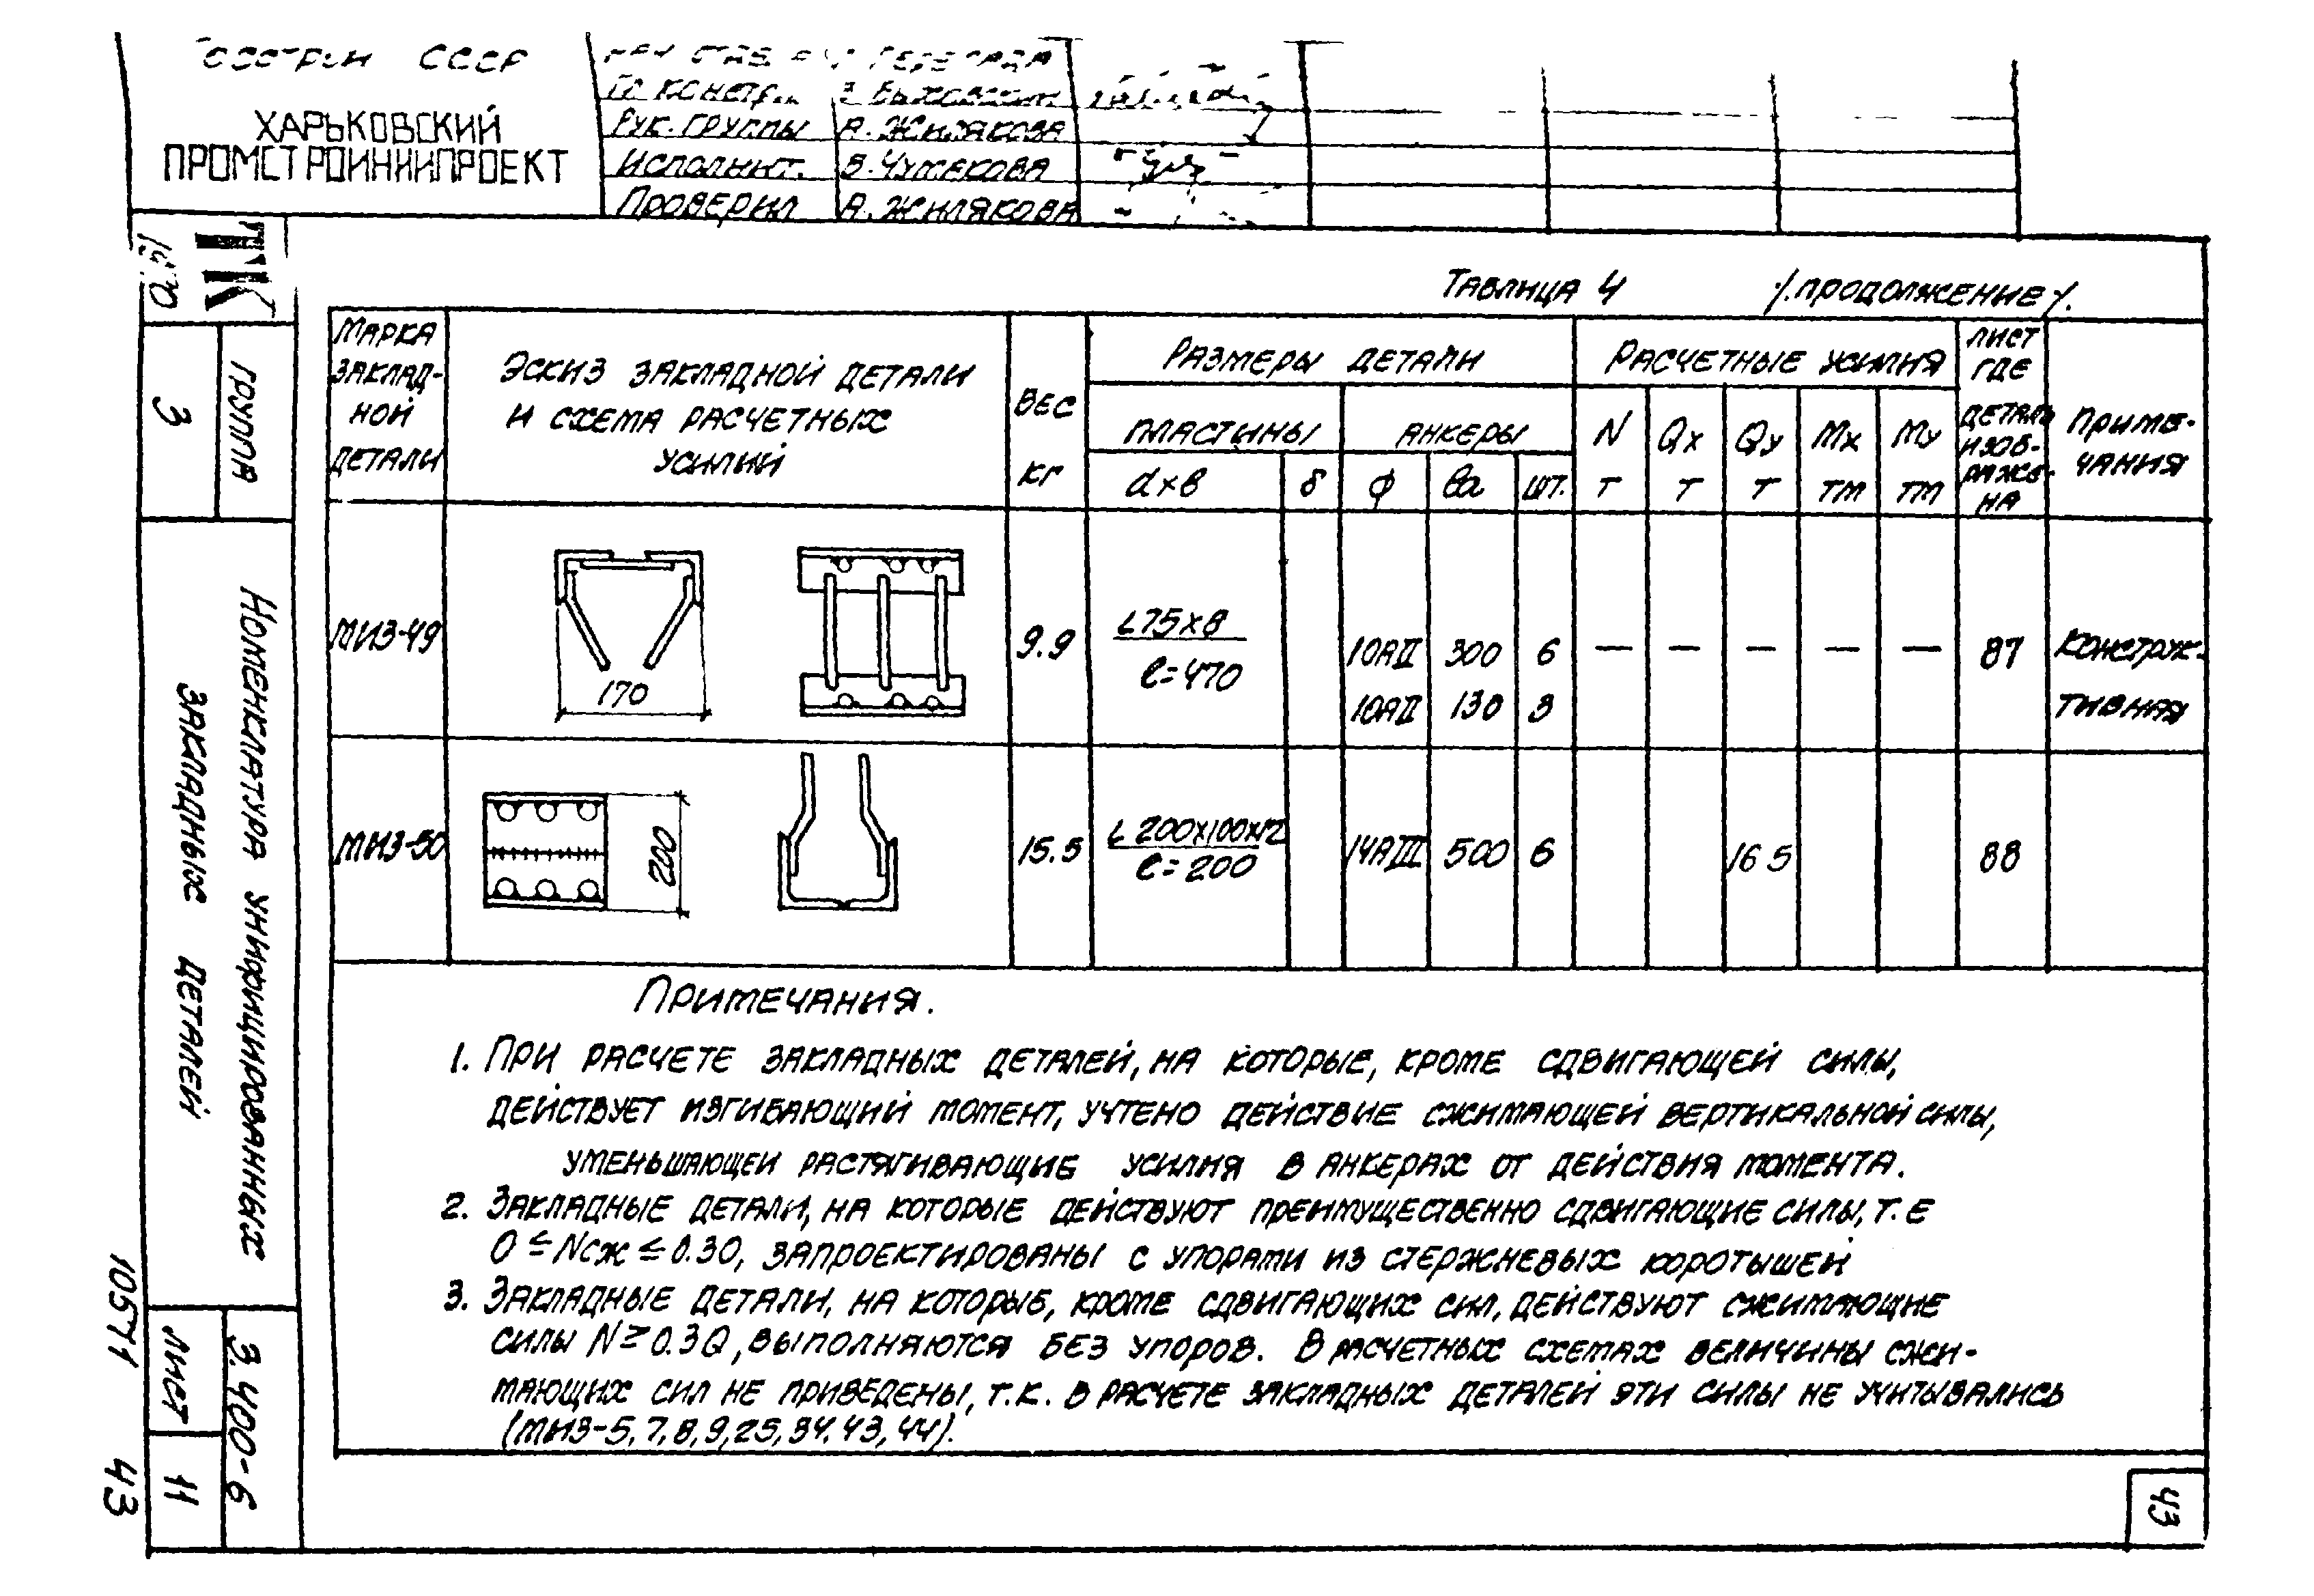 ХАРЬКОВСКИЙ
ПРОМСТРОИНИИПРОЕКТ
Рук. группы А. Жилякова
Исполнит. В. Чумакова
Проверил А. Жилякова
ТК
Группа
3
Номенклатура унифицированных
закладных деталей
3.400-6
Лист
11
10571 43
Таблица 4 /.продолжение/.
Марка закладной детали
Эскиз закладной детали и схема расчетных усилий
Вес кг
Размеры детали
Расчетные усилия
Лист где деталь изображена
Примечания
пластины анкеры
N Qx Qy Mx My
d×в δ ф ℓа шт. т т т тм тм
МИЗ-49 170 9.9 L75×8 ℓ=470 10АII 300 6 — — — — — 87 Конструк-
10АII 130 3 тивная
МИЗ-50 200 15.5 L200×100×12 ℓ=200 14АIII 500 6 16 5 88
Примечания.
1. При расчете закладных деталей, на которые, кроме сдвигающей силы,
действует изгибающий момент, учтено действие сжимающей вертикальной силы,
уменьшающей растягивающие усилия в анкерах от действия момента.
2. Закладные детали, на которые действуют преимущественно сдвигающие силы, т.е
0 ≤ Nсж ≤ 0.3Q, запроектированы с упорами из стержневых коротышей
3. Закладные детали, на которые, кроме сдвигающих сил, действуют сжимающие
силы N ≥ 0.3Q, выполняются без упоров. В расчетных схемах величины сжи-
мающих сил не приведены, т.к. в расчете закладных деталей эти силы не учитывались
(МИЗ-5, 7, 8, 9, 25, 34, 43, 44).
43